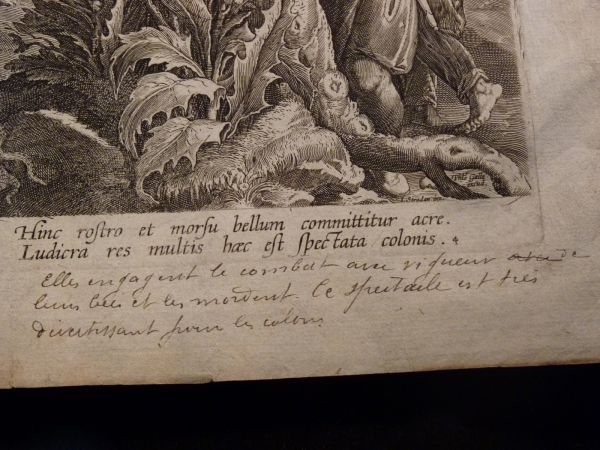 Phls Galle
excud.
I. Stradan. inv.
Hinc rostro et morsu bellum committitur acre.
Ludicra res multis hæc est spectata colonis.
Elles engagent le combat avec vigueur avec de
leurs bées et les mordent. Ce spectacle est très
divertissant pour les colons